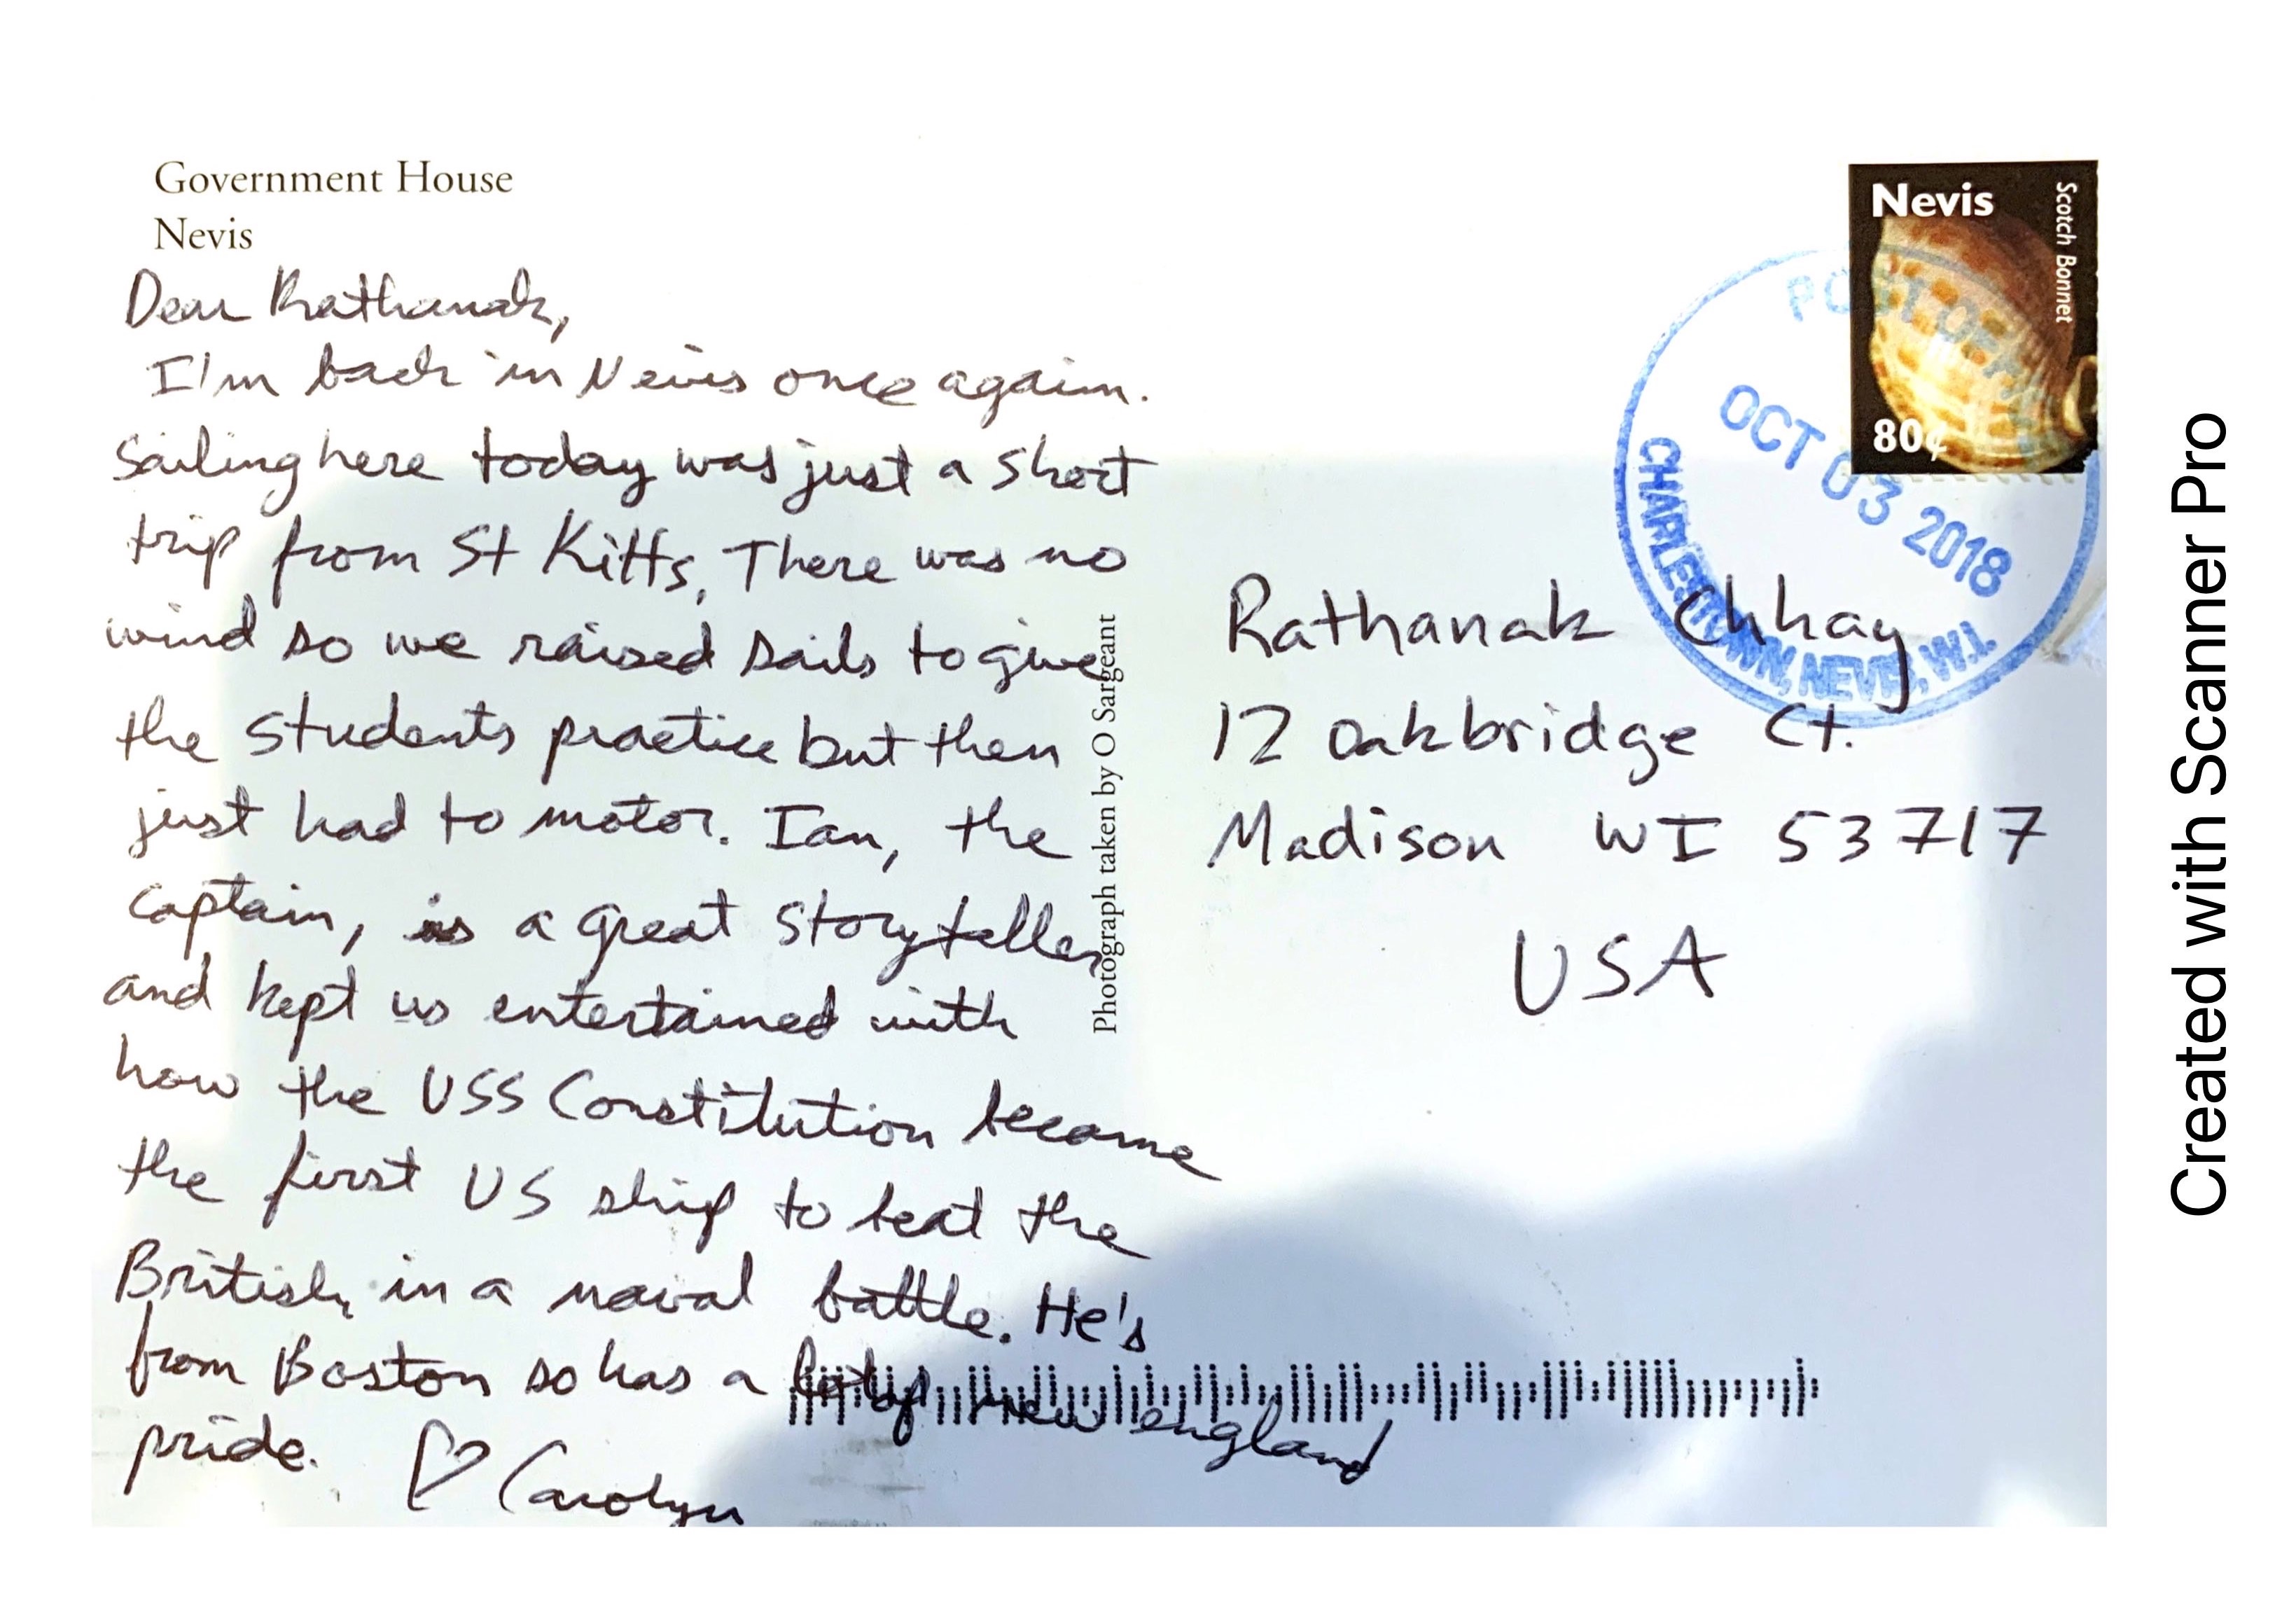 Government House
Nevis
Dear Rathanak,
I'm back in Nevis once again.
Sailing here today was just a short
trip from St Kitts. There was no
wind so we raised sails to give
the students practice but then
just had to motor. Ian, the
captain, is a great storyteller
and kept us entertained with
how the USS Constitution became
the first US ship to beat the
British in a naval battle. He's
from Boston so has a lot of new england
pride. ♡ Carolyn
Photograph taken by O Sargeant
Nevis
Scotch Bonnet
80¢
POST OFFICE
OCT 03 2018
CHARLESTOWN, NEVIS, W.I.
Rathanak Chhay
12 Oakbridge Ct.
Madison WI 53717
USA
Created with Scanner Pro